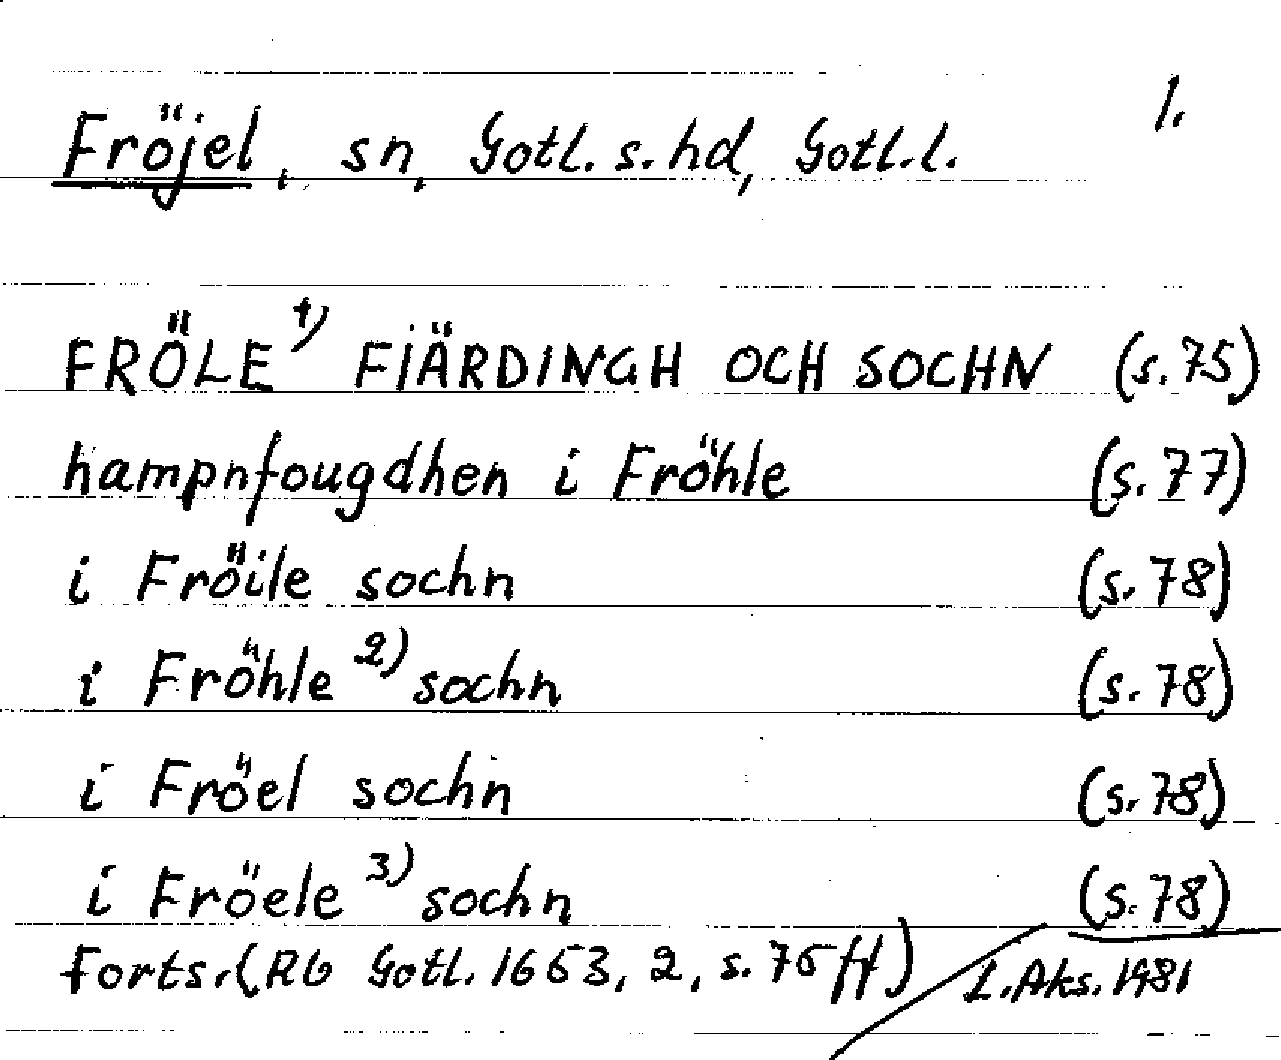 1.
Fröjel, sn, Gotl. s. hd, Gotl. l.
FRÖLE 1) FIÄRDINGH OCH SOCHN (s. 75)
hampnfougdhen i Fröhle (s. 77)
i Fröile sochn (s. 78)
i Fröhle 2) sochn (s. 78)
i Fröel sochn (s. 78)
i Fröele 3) sochn (s. 78)
forts. (RG Gotl. 1653, 2, s. 75 ff) L. Aks. 1981